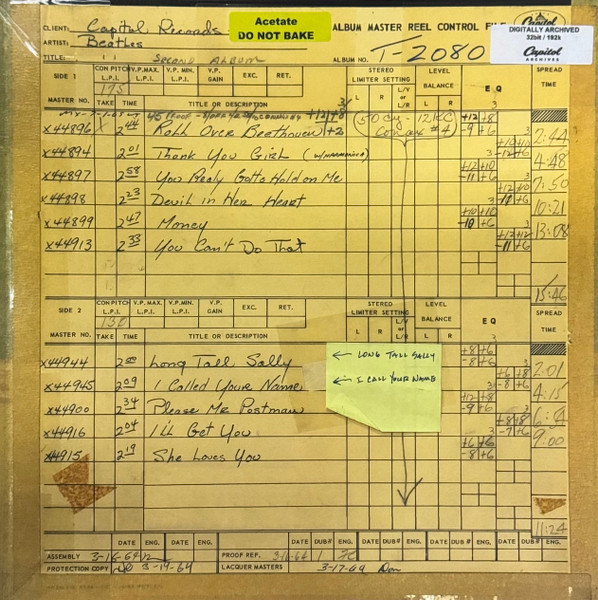 CLIENT: Capitol Records
Acetate
DO NOT BAKE
ALBUM MASTER REEL CONTROL FILE
Capitol
DIGITALLY ARCHIVED
32bit / 192k
Capitol
ARCHIVES
ARTIST: Beatles
TITLE: " " SECOND ALBUM
ALBUM NO. T-2080
SIDE 1 CON PITCH L.P.I. V.P. MAX. L.P.I. V.P. MIN. L.P.I. V.P. GAIN EXC. RET. STEREO LIMITER SETTING LEVEL BALANCE EQ SPREAD TIME
175
L R L/V or L/R L R
MASTER NO. TAKE TIME TITLE OR DESCRIPTION
50 cy - 12KC
X44896 2 44 Roll Over Beethoven +2 +12 +8 -9 +6 2:44
X44894 2 01 Thank You Girl (W/HARMONICA) 4:48
X44897 2 58 You Realy Gotta Hold on Me +12 +10 -11 +6 7:50
X44898 2 23 Devil in Her Heart 10:21
X44899 2 47 Money +10 +10 -10 +6 13:08
X44913 2 33 You Can't Do That +12 +12 -11 +6
15:46
SIDE 2 CON PITCH L.P.I. V.P. MAX. L.P.I. V.P. MIN. L.P.I. V.P. GAIN EXC. RET. STEREO LIMITER SETTING LEVEL BALANCE EQ SPREAD TIME
L R L/V or L/R L R
MASTER NO. TAKE TIME TITLE OR DESCRIPTION
X44944 Long Tall Sally ← LONG TALL SALLY +8 +6 -8 +6 2:01
X44945 2 09 I Called Your Name ← I CALL YOUR NAME +6 +8 -8 +6 4:15
X44900 2 34 Please Mr Postman +12 +8 -9 +6
X44916 2 04 I'll Get You +8 +8 -7 +6 9:00
X44915 2 19 She Loves You +6 +6 -8 +6
11:24
DATE ENG. DATE ENG. DATE DUB# ENG. DATE DUB# ENG. DATE DUB# ENG.
ASSEMBLY 3-16-64 PROOF REP. 1
PROTECTION COPY 3-19-64 LACQUER MASTERS 3-17-64